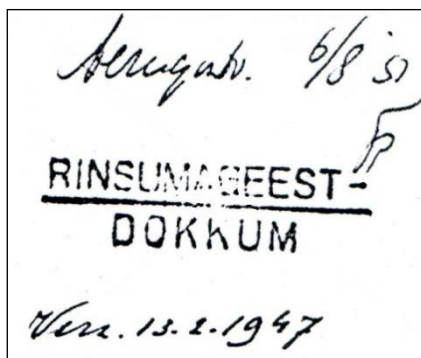 6/8 51
RINSUMAGEEST-
DOKKUM
Verz. 13.2.1947